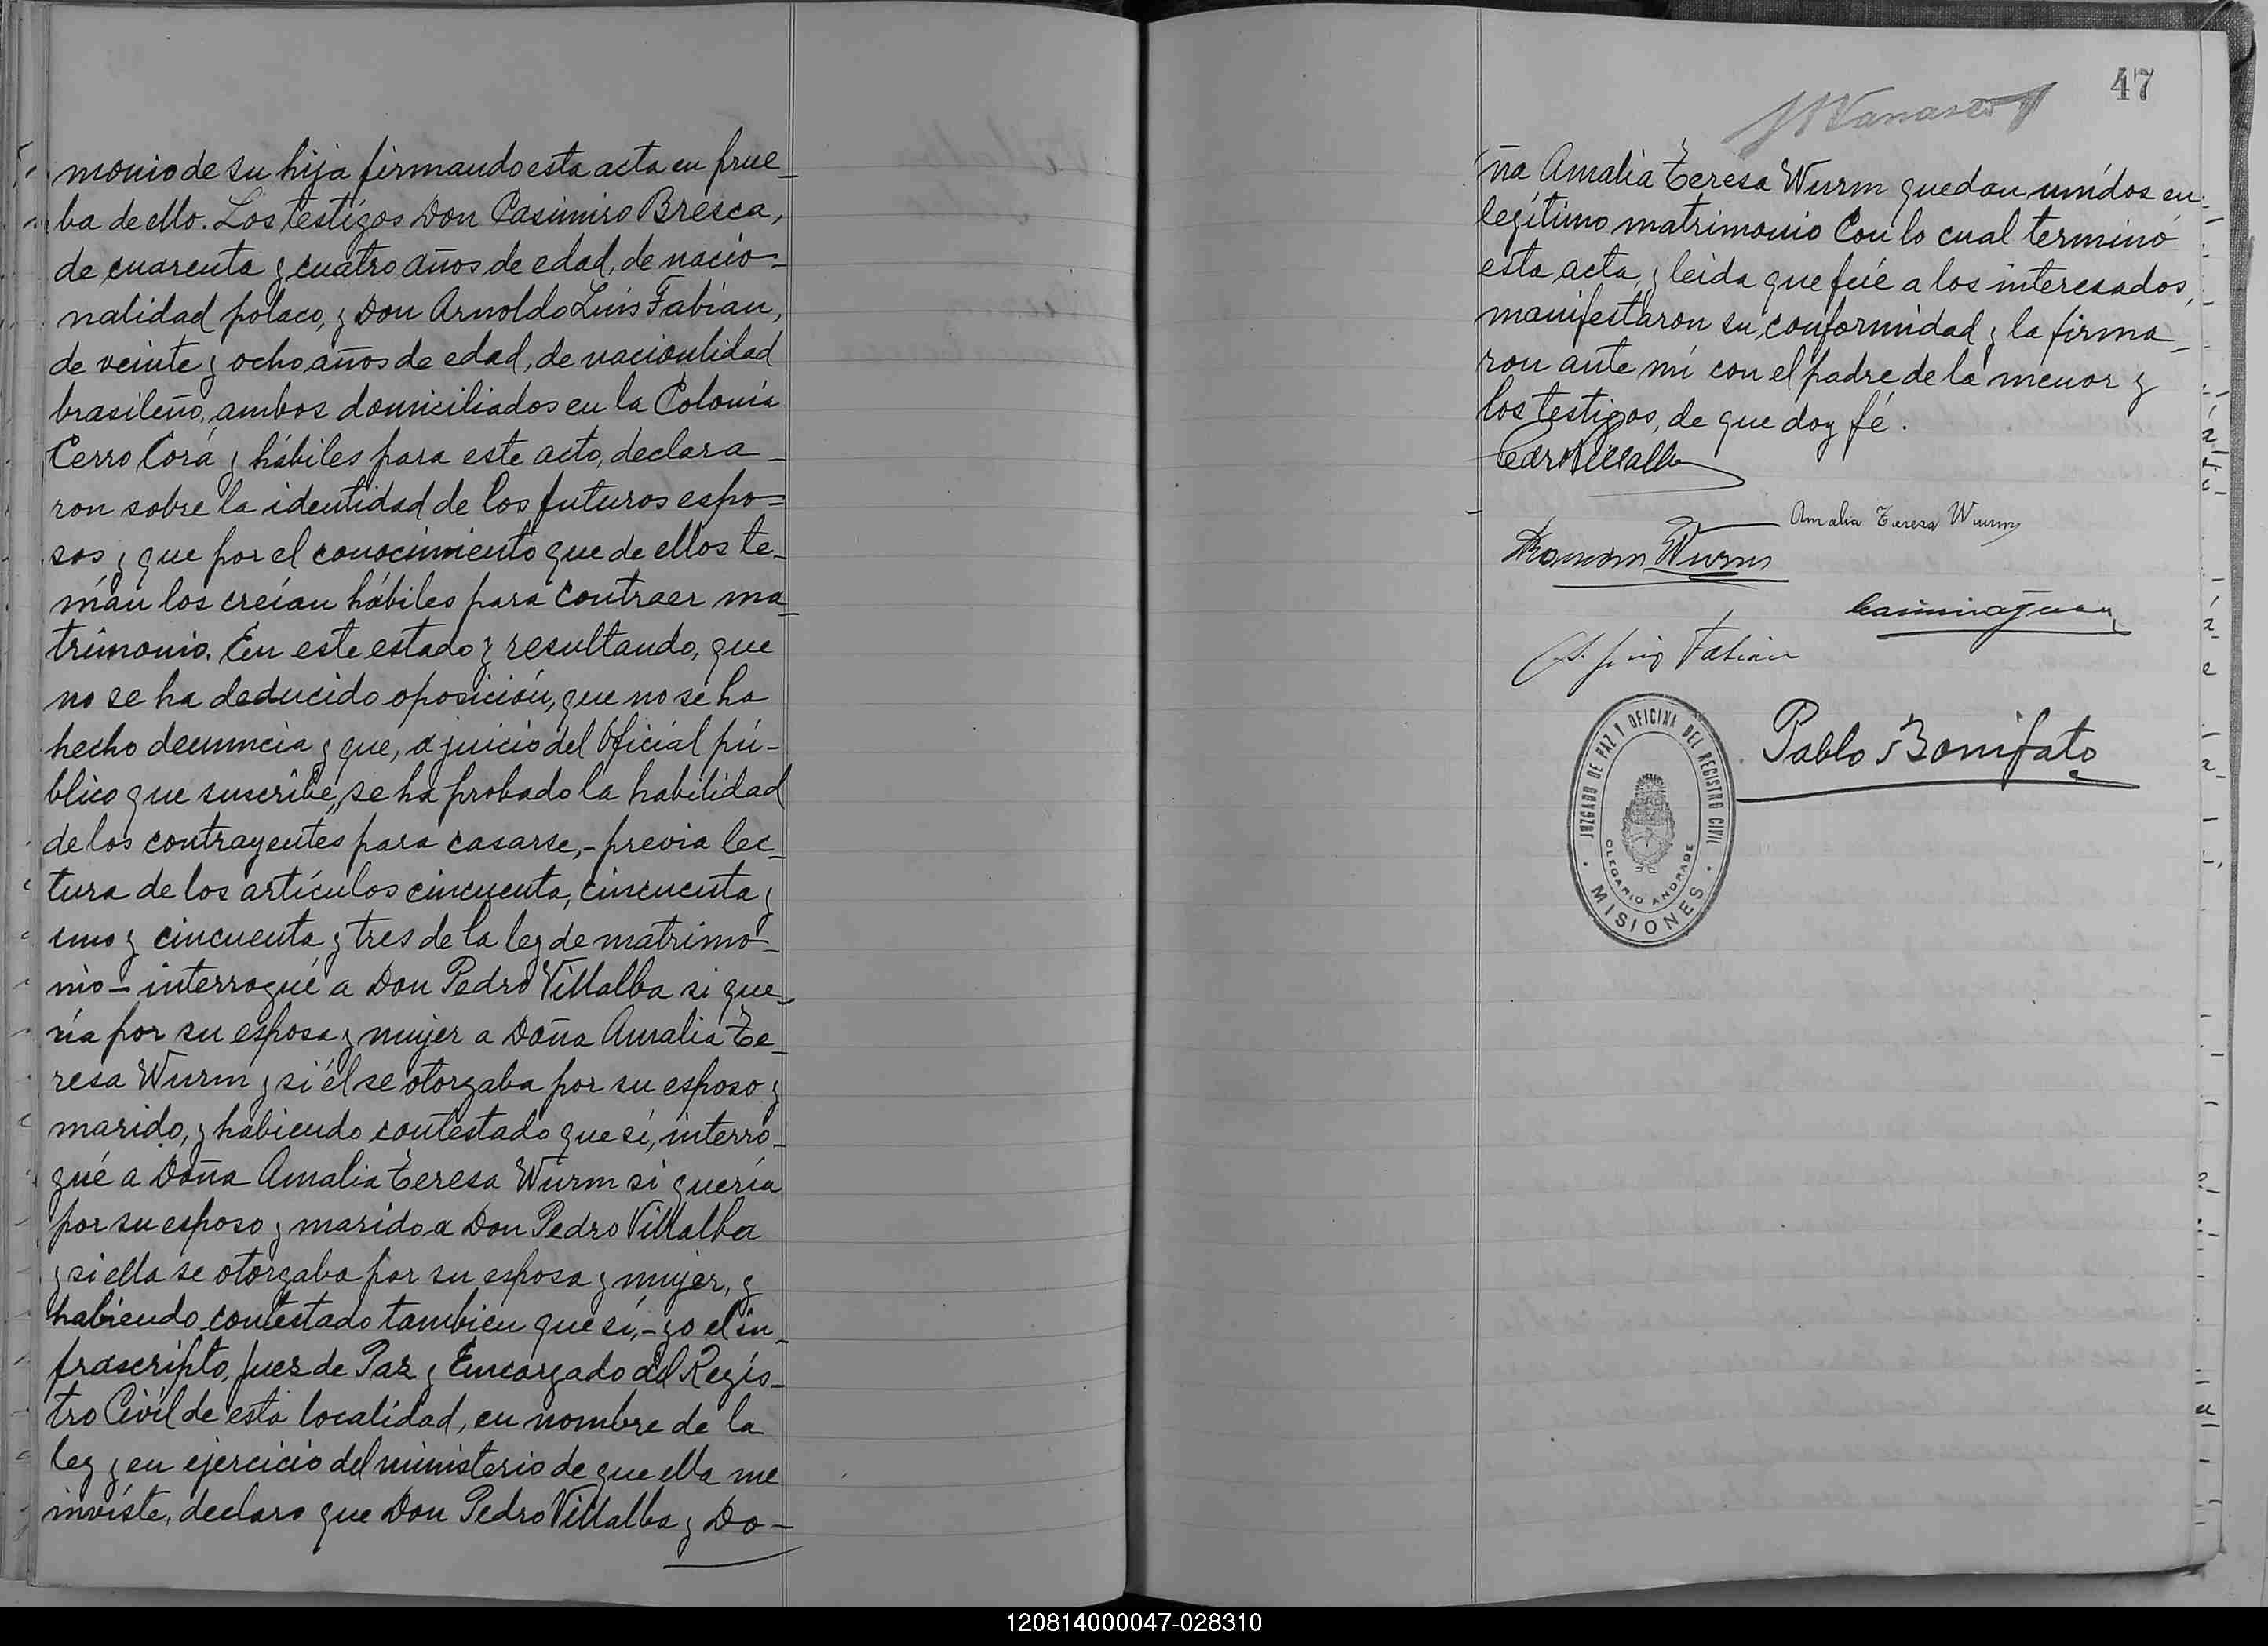 monio de su hija firmando esta acta en prue-
ba de ello. Los testigos Don Casimiro Bresca,
de cuarenta y cuatro años de edad, de nacio-
nalidad polaco, y Don Arnoldo Luis Fabian,
de veinte y ocho años de edad, de nacionlidad
brasileño, ambos domiciliados en la Colonia
Cerro Corá y hábiles para este acto, declara-
ron sobre la identidad de los futuros espo-
sos y que por el conocimiento que de ellos te-
nían los creían hábiles para contraer ma-
trimonio. En este estado y resultando, que
no se ha deducido oposición, que no se ha
hecho denuncia y que, a juicio del Oficial pú-
blico que suscribe, se ha probado la habilidad
de los contrayentes para casarse,- previa lec-
tura de los artículos cincuenta, cincuenta y
uno y cincuenta y tres de la ley de matrimo-
nio - interrogué a Don Pedro Villalba si que-
ría por su esposa y mujer a Doña Amalia Te-
resa Wurm y si él se otorgaba por su esposo y
marido, y habiendo contestado que sí, interro-
gué a Doña Amalia Teresa Wurm si quería
por su esposo y marido a Don Pedro Villalba
y si ella se otorgaba por su esposa y mujer, y
habiendo contestado tambien que sí,- yo el in-
frascripto, Juez de Paz y Encargado del Regis-
tro Civil de esta localidad, en nombre de la
ley y en ejercicio del ministerio de que ella me
inviste, declaro que Don Pedro Villalba y Do-
47
ña Amalia Teresa Wurm quedan unídos en
legítimo matrimonio Con lo cual terminó
esta acta, y leida que fué a los interesados,
manifestaron su conformidad y la firma-
ron ante mí con el padre de la menor y
los testigos, de que doy fé.
Pedro Villalba
Amalia Teresa Wurm
Wurm
Fabian
Pablo Bonifato
JUZGADO DE PAZ Y OFICINA DEL REGISTRO CIVIL
OLEGARIO ANDRADE
MISIONES
120814000047-028310